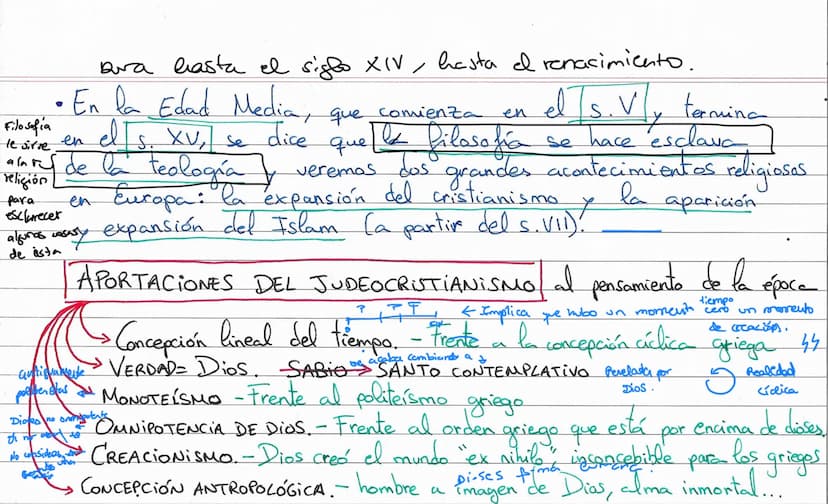 dura hasta el siglo XIV, hasta el renacimiento.
• En la Edad Media, que comienza en el s. V y termina
en el s. XV, se dice que la filosofía se hace esclava
de la teología y veremos dos grandes acontecimientos religiosos
en Europa: la expansión del cristianismo y la aparición
y expansión del Islam (a partir del s. VII).
Filosofía
le sirve
a la
religión
para
esclarecer
algunas cosas
de ésta
APORTACIONES DEL JUDEOCRISTIANISMO al pensamiento de la época
← Implica que hubo un momento cero un momento
tiempo
de creación.
Concepción lineal del tiempo. - Frente a la concepción cíclica griega
VERDAD = Dios. SABIO → SANTO CONTEMPLATIVO
acaba cambiando a
Revelada por
Dios.
Realidad
cíclica
antiguamente
politeístas
MONOTEÍSMO - Frente al politeísmo griego
OMNIPOTENCIA DE DIOS. - Frente al orden griego que está por encima de dioses.
Dioses no omnipotentes
CREACIONISMO. - Dios creó el mundo "ex nihilo" inconcebible para los griegos
CONCEPCIÓN ANTROPOLÓGICA. - hombre a imagen de Dios, alma inmortal...